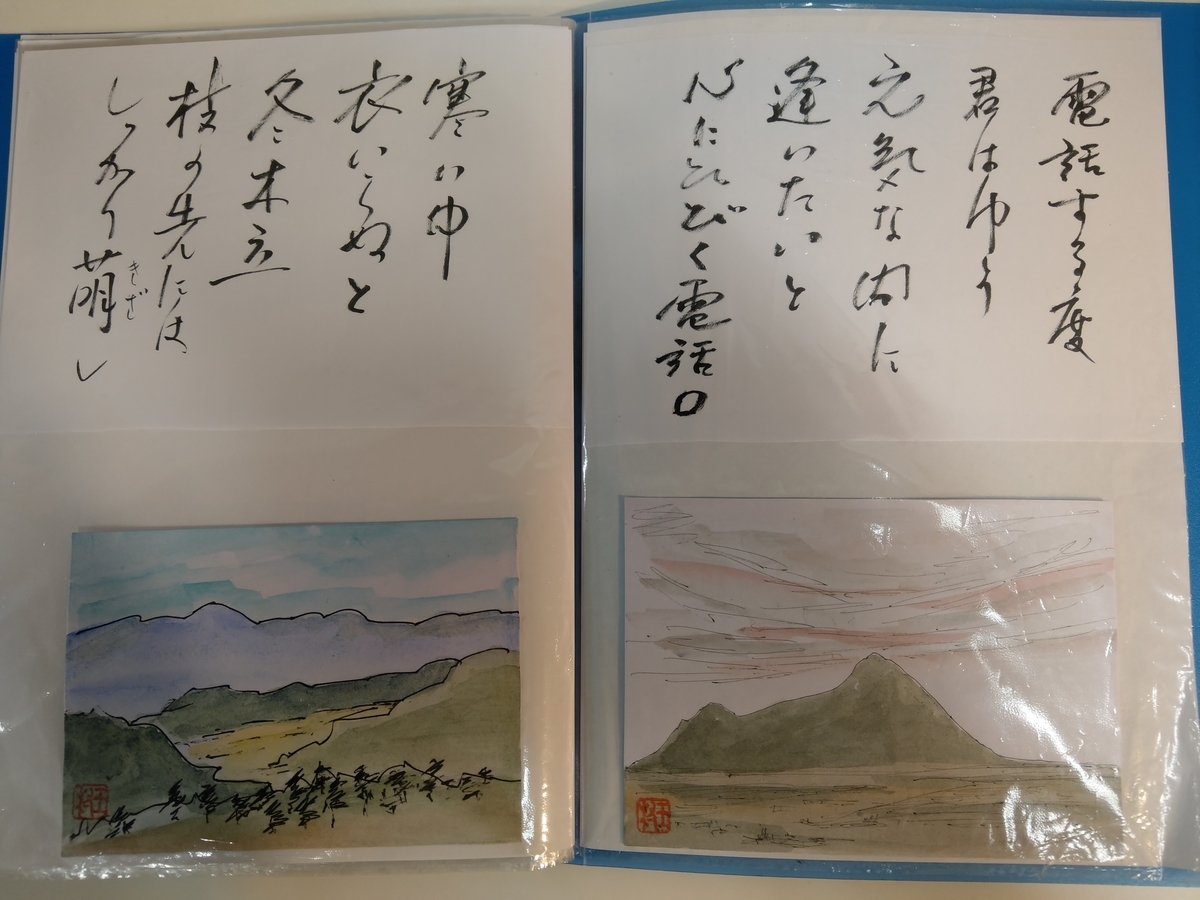 電話する度
君はゆう
元気な内に
逢いたいと
心にひびく電話口
寒い中
衣いらぬと
冬木立
枝の先には
しっかり萌し
きざ